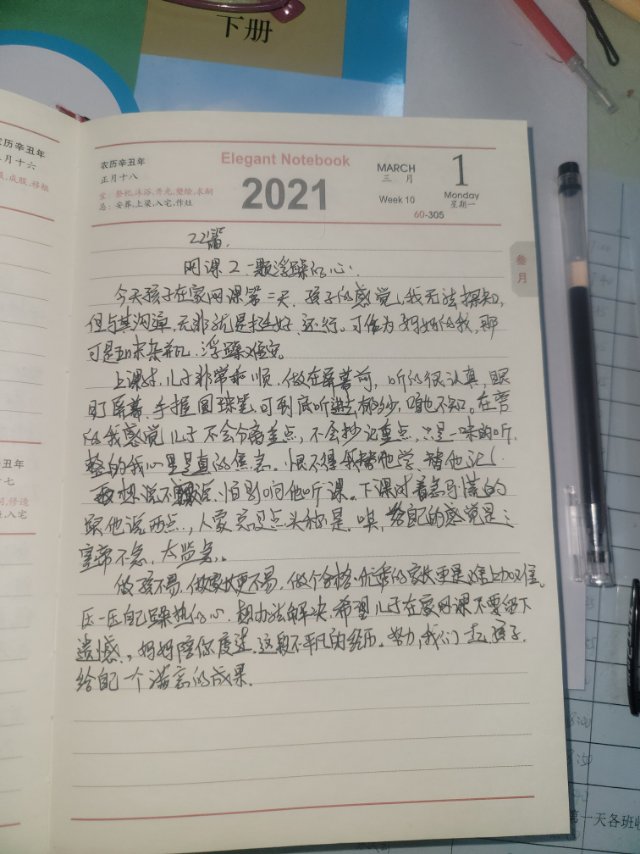 下册
农历辛丑年
正月十八
Elegant Notebook
2021
MARCH
三 月
1
Week 10
Monday
星期一
60-305
宜：祭祀,沐浴,开光,塑绘,求嗣
忌：安葬,上梁,入宅,作灶
叁月
22篇.
网课2.一颗浮躁的心.
今天孩子在家网课第二天.孩子的感觉,我无法探知,
但与其沟通,无非就是挺好,还行。可作为妈妈的我,那
可是五味杂瓶.浮躁难定。
上课时,儿子非常乖顺,做在屏幕前,听的很认真,眼
盯屏幕,手握圆珠笔,可到底听进去多少,咱也不知。在旁
的我感觉儿子不会分离重点,不会抄记重点,只是一味的听.
整的我心里是真的焦急。恨不得我替他学.替他记!
想说不敢说,怕影响他听课。下课时着急慌慌的
跟他说两点,人家总是点头称是.唉,给自己的感觉是:
皇帝不急,太监急。
做孩不易,做家长更不易,做个合格.优秀的家长更是难上加难.
压一压自己躁热的心,想办法解决.希望儿子在家网课不要留下
遗憾。妈妈陪你度过.这段不平凡的经历。努力,我们一起.孩子.
给自己一个满意的成果.
农历辛丑年
月十六
辛丑年
十七
第一天各班